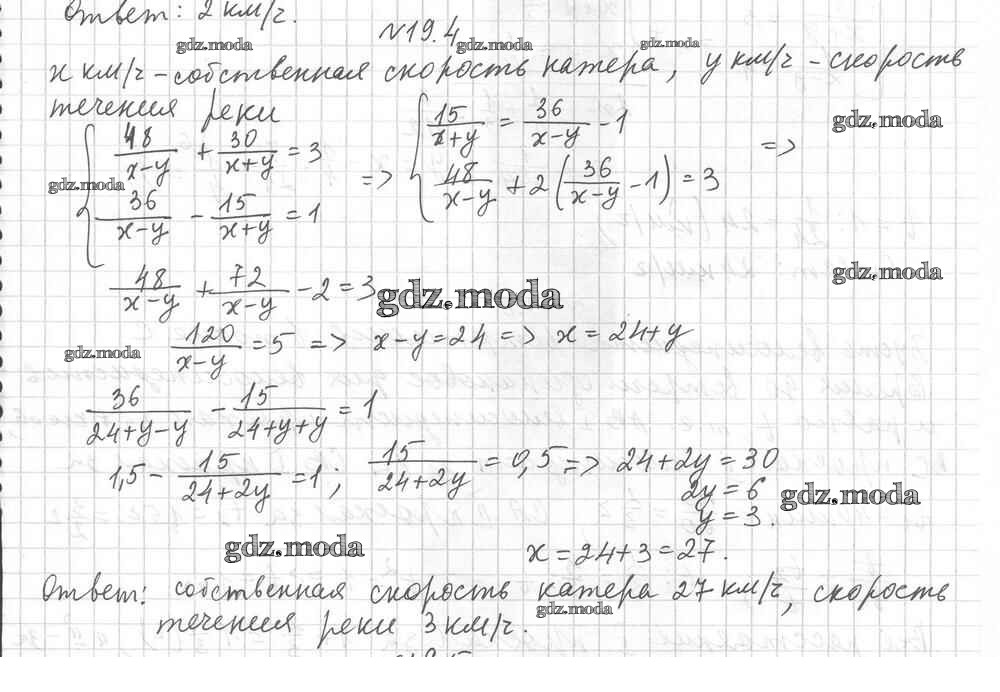 Ответ: 2 км/ч.
№19.4
gdz.moda gdz.moda gdz.moda
x км/ч - собственная скорость катера, y км/ч - скорость
течения реки
gdz.moda
{ 48/(x-y) + 30/(x+y) = 3 => { 15/(x+y) = 36/(x-y) - 1 =>
gdz.moda
36/(x-y) - 15/(x+y) = 1 48/(x-y) + 2(36/(x-y) - 1) = 3
gdz.moda
48/(x-y) + 72/(x-y) - 2 = 3
gdz.moda
120/(x-y) = 5 => x-y=24 => x=24+y
gdz.moda
36/(24+y-y) - 15/(24+y+y) = 1
1,5 - 15/(24+2y) = 1; 15/(24+2y) = 0,5 => 24+2y=30
2y=6
gdz.moda
y=3.
gdz.moda
x=24+3=27.
Ответ: собственная скорость катера 27 км/ч, скорость
gdz.moda
течения реки 3 км/ч.